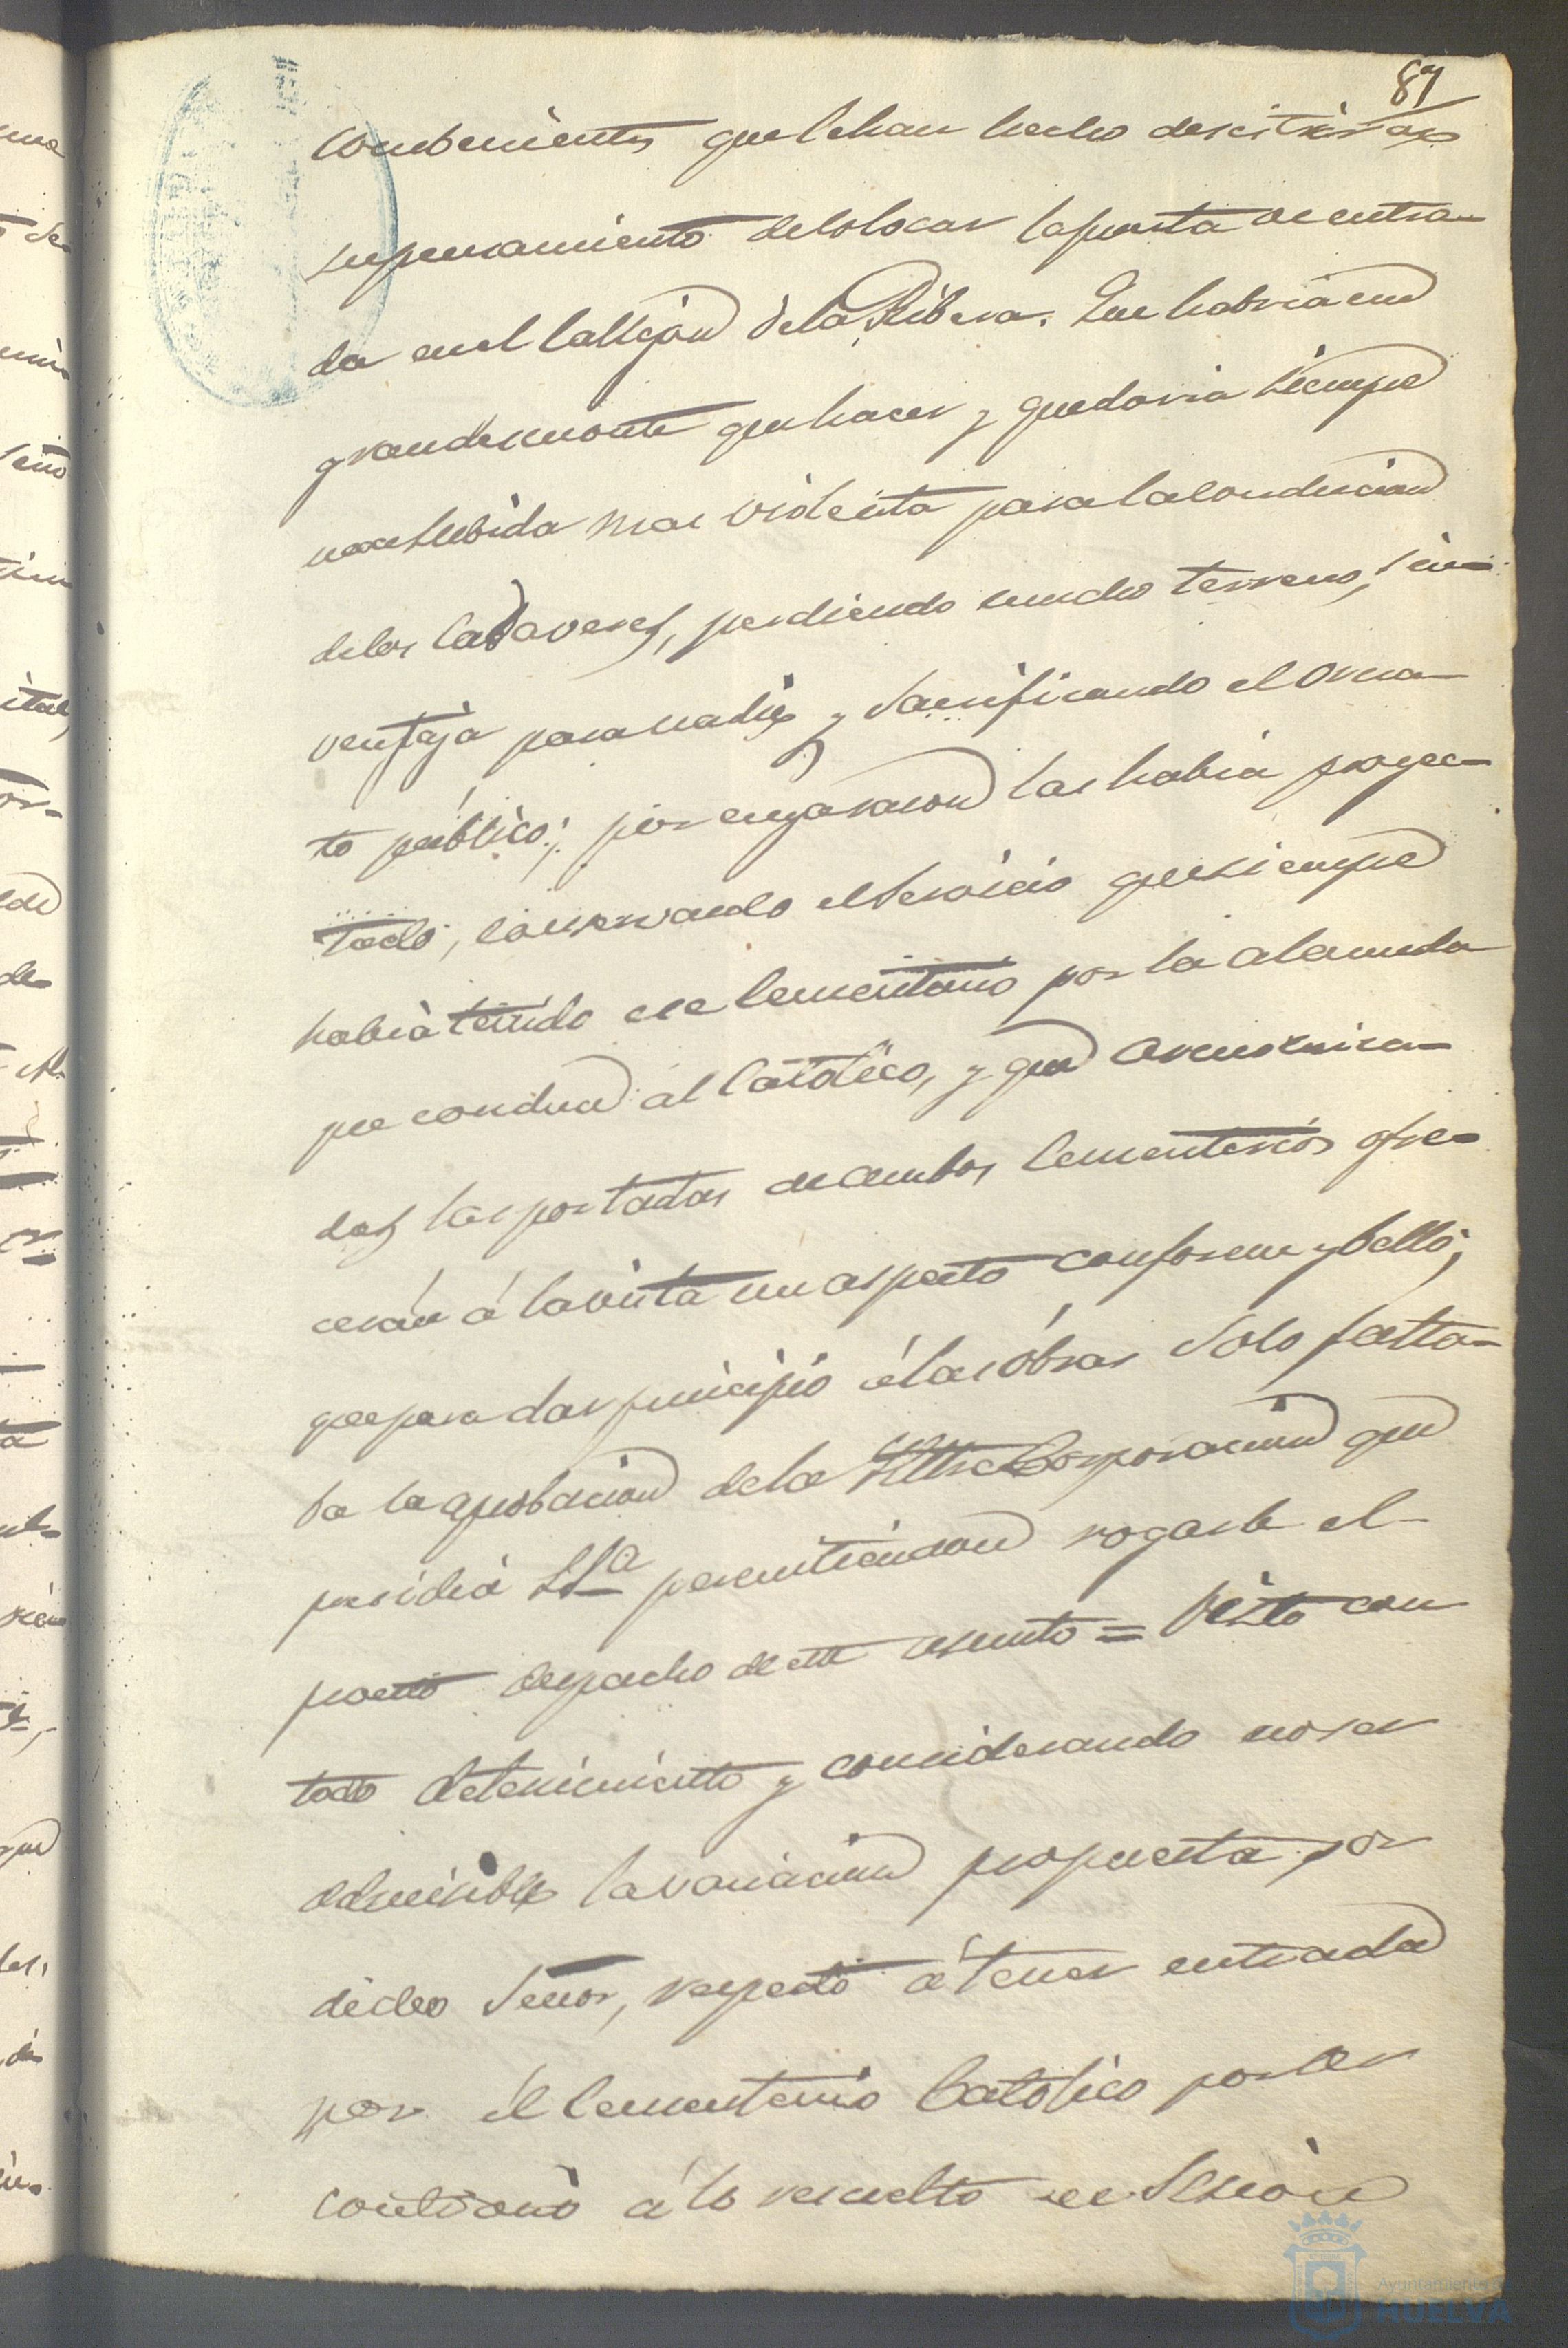 87
conbenientes que le han hecho desistir de
su pensamiento de colocar la puerta de entra-
da en el Callejon de la Ribera. Que habria un
grande monte que hacer y quedaria siempre
una subida mas violenta para la conducion
de los Cadaveres, perdiendo mucho terreno, sin
ventaja para nadie y sacrificando el orna-
to público; por cuya razon las habia proyec-
tado, conservando el servicio que siempre
habia tenido ese Cementerio por la alameda
que conduce al Católico, y que armoniza-
das las portadas de ambos Cementerios ofre-
cerán á la vista un aspecto conforme y bello;
que para dar principio á las óbras solo falta-
ba la aprobacion de la Iltre Corporacion que
presidia SSa permitiendose rogarle el
pronto despacho de este asunto = Visto con
todo detenimiento y considerando no ser
admisible la variacion propuesta por
dicho Señor, respecto á tener entrada
por el Cementerio Catolico por ser
contrario á lo resuelto en Sesion
Ayuntamiento de
HUELVA